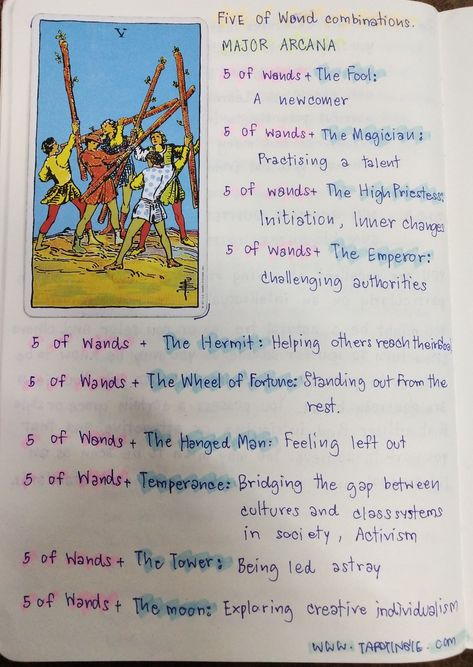 V
Five of Wand combinations.
MAJOR ARCANA
5 of wands + The Fool:
A newcomer
5 of wands + The Magician:
Practising a talent
5 of wands + The High Priestess:
Initiation, Inner changes
5 of wands + The Emperor:
challenging authorities
5 of wands + The Hermit: Helping others reach their
5 of Wands + The Wheel of Fortune: Standing out from the
rest.
5 of Wands + The Hanged Man: Feeling left out
5 of Wands + Temperance: Bridging the gap between
cultures and class systems
in society, Activism
5 of Wands + The Tower: Being led astray
5 of Wands + The moon: Exploring creative individualism